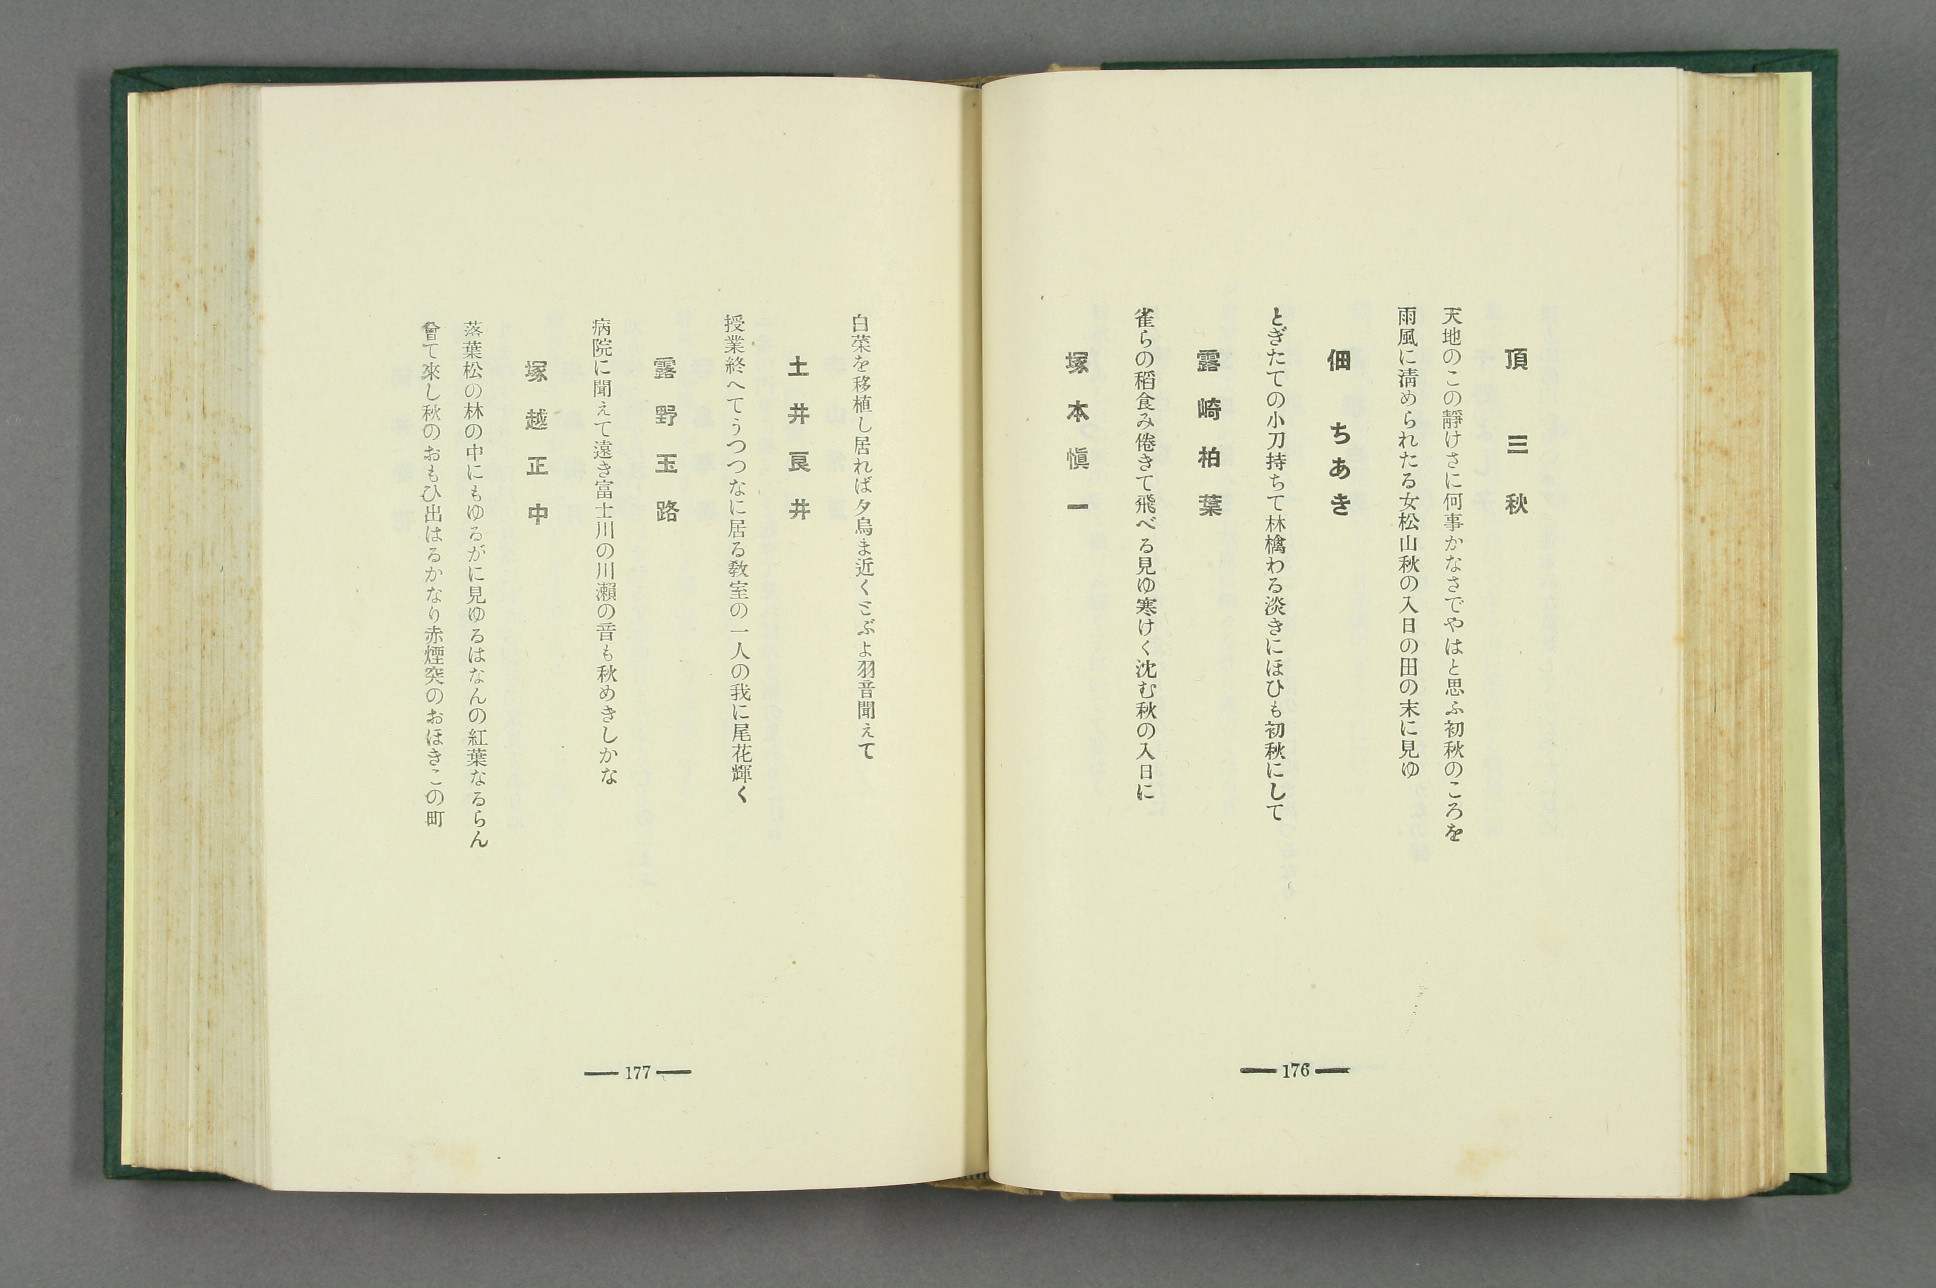 頂三秋
天地のこの靜けさに何事かなさでやはと思ふ初秋のころを
雨風に淸められたる女松山秋の入日の田の末に見ゆ
佃ちあき
とぎたての小刀持ちて林檎わる淡きにほひも初秋にして
露崎柏葉
雀らの稻食み倦きて飛べる見ゆ寒けく沈む秋の入日に
塚本愼一
176
白菜を移植し居れば夕鳥ま近くとぶよ羽音聞えて
土井良井
授業終へてうつつなに居る敎室の一人の我に尾花輝く
露野玉路
病院に聞えて遠き富士川の川瀨の音も秋めきしかな
塚越正中
落葉松の林の中にもゆるがに見ゆるはなんの紅葉なるらん
曾て來し秋のおもひ出はるかなり赤煙突のおほきこの町
177